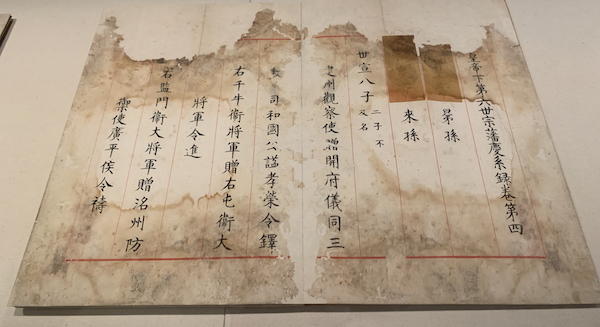 皇帝下第六世宗藩慶系錄卷第四
晜孫
來孫
世宣八子
二子不
及名
州觀察使贈開府儀同三
司和國公謚孝榮令鐸
右千牛衛將軍贈右屯衛大
將軍令進
右監門衛大將軍贈洺州防
禦使廣平侯令